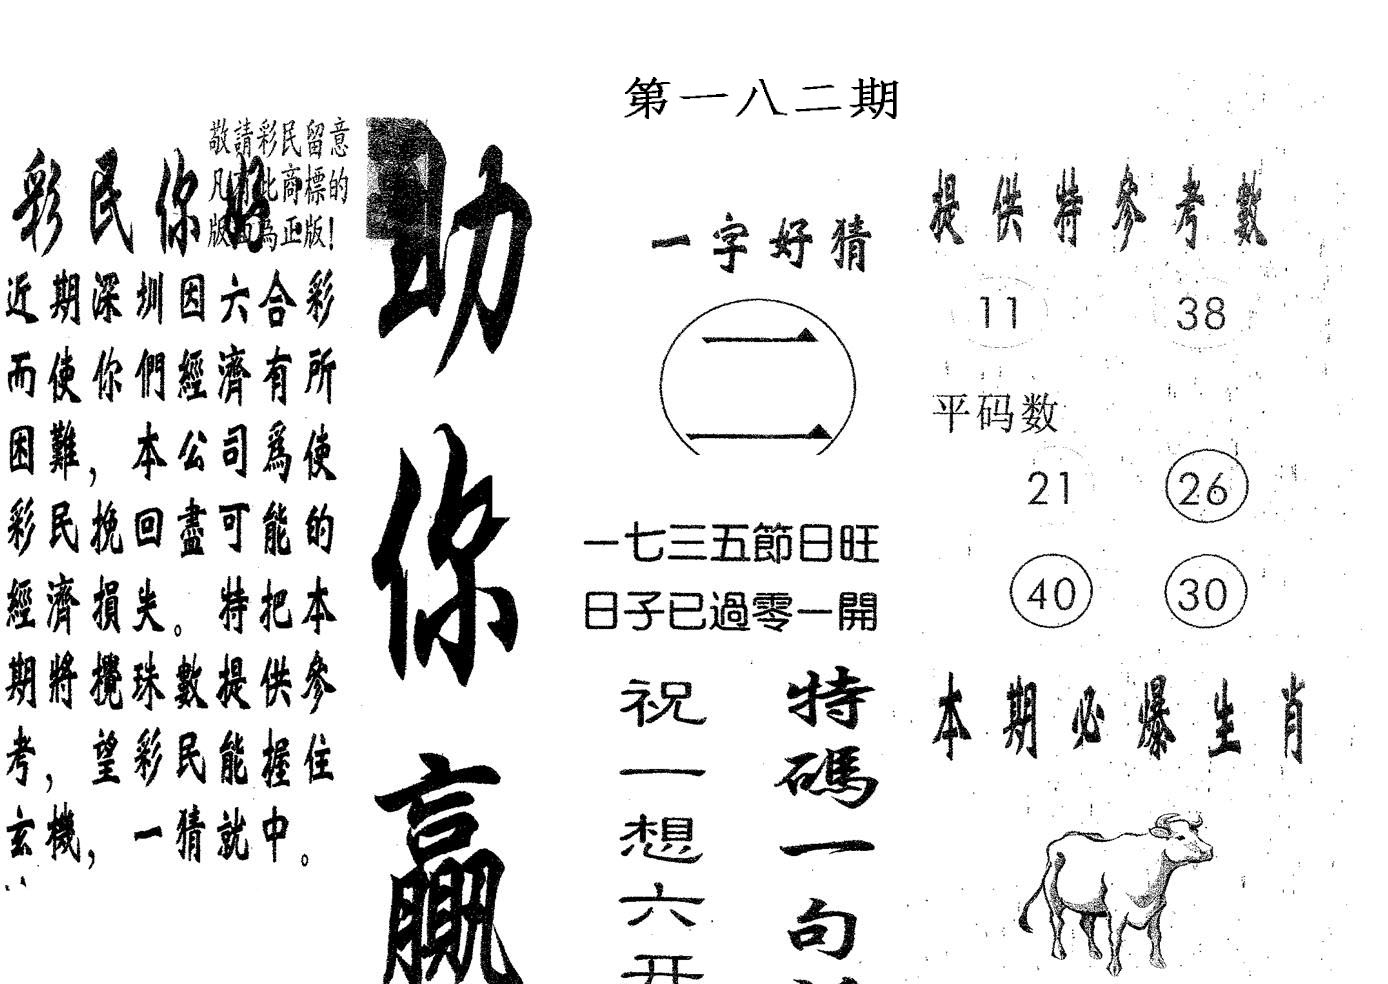 第一八二期
敬請彩民留意
凡有此商標的
版面為正版!
彩民你好
近期深圳因六合彩
而使你們經濟有所
困難，本公司爲使
彩民挽回盡可能的
經濟損失。特把本
期將攪珠數提供參
考，望彩民能握住
玄機，一猜就中。
助你贏
一字好猜
二
一七三五節日旺
日子已過零一開
特碼一句
祝一想六开
提供特參考數
11 38
平码数
21 26
40 30
本期必爆生肖